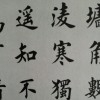 墻角數
淩寒獨
遥知不